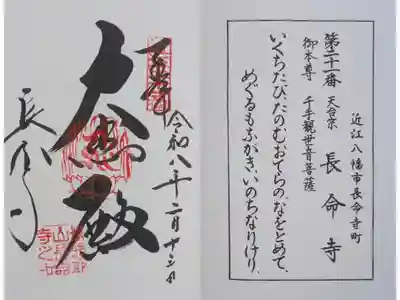 近江八幡市長命寺町
第二十一番 天台宗 長命寺
御本尊 千手観世音菩薩
いくちたび、たのむおてらのなをとめて、
めぐるもふかきいのちなりけり、
令和八年二月十三日
大悲殿
長命寺